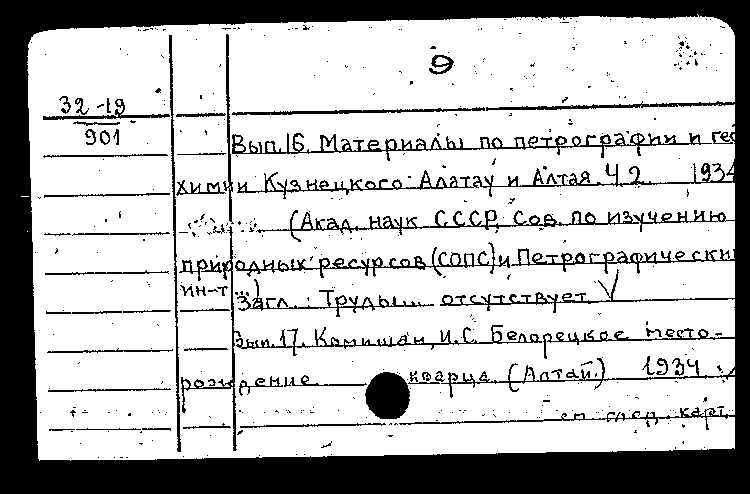 9
32-19
901
Вып.16. Материалы по петрографии и гео
химии Кузнецкого Алатау и Алтая. Ч.2. 1934
(Акад. наук СССР, Сов. по изучению
природных ресурсов (СОПС) и Петрографический
ин-т...)
Загл.: Труды... отсутствует V
Вып.17. Камишан, И.С. Белорецкое место-
рождение кварца. (Алтай.) 1934
см. след. карт.